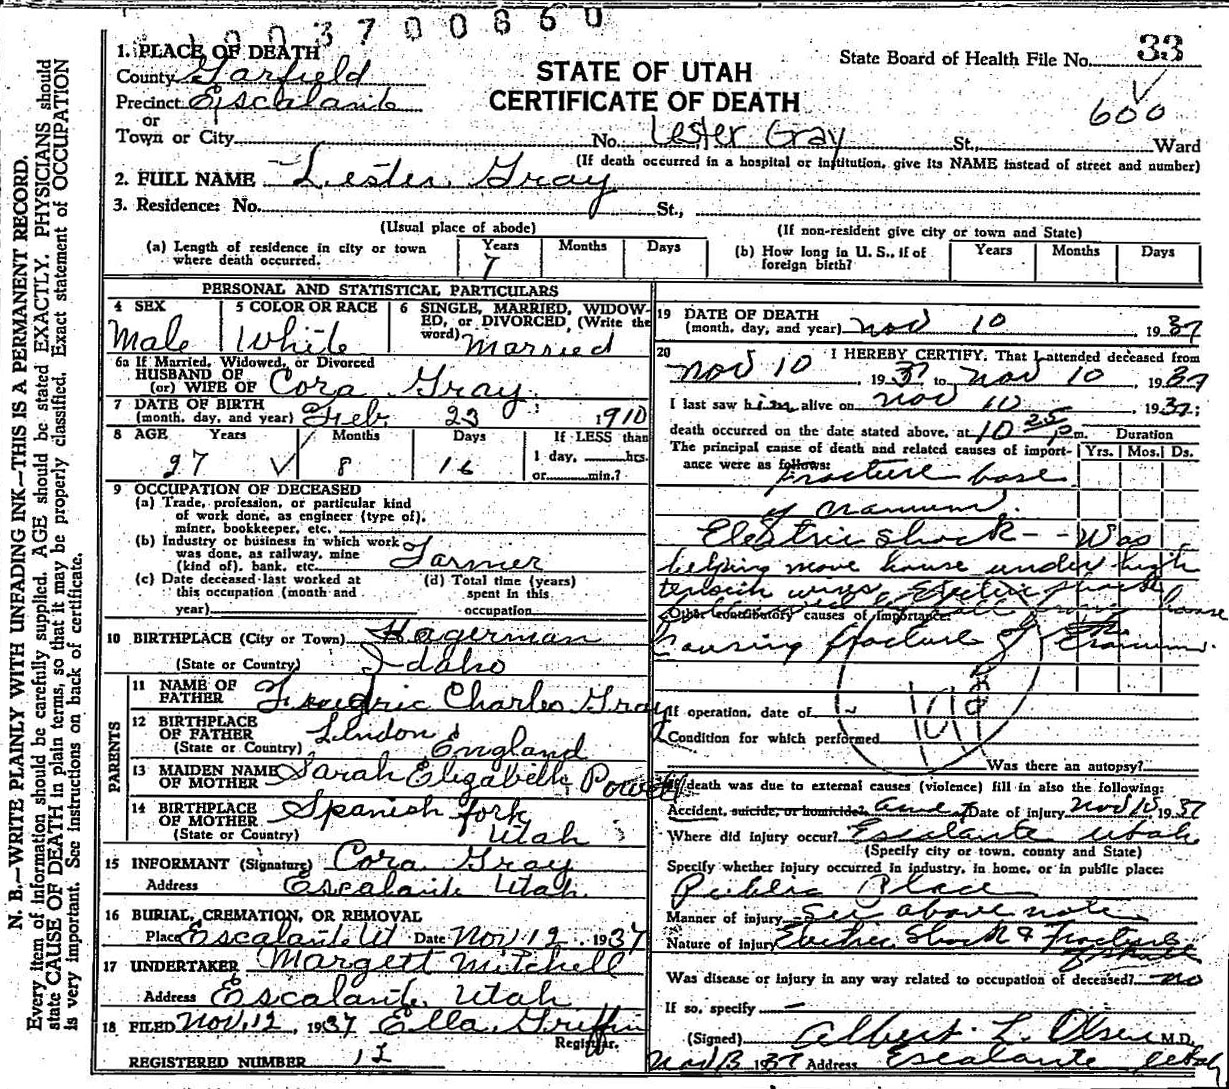 003700860
1. PLACE OF DEATH
County Garfield
Precinct Escalante
or
Town or City
STATE OF UTAH
CERTIFICATE OF DEATH
State Board of Health File No. 33
600
No. Lester Gray St., Ward
(If death occurred in a hospital or institution, give its NAME instead of street and number)
2. FULL NAME Lester Gray
3. Residence: No. St.,
(Usual place of abode) (If non-resident give city or town and State)
(a) Length of residence in city or town where death occurred. Years 7 Months Days
(b) How long in U. S., if of foreign birth? Years Months Days
PERSONAL AND STATISTICAL PARTICULARS
4 SEX Male
5 COLOR OR RACE White
6 SINGLE, MARRIED, WIDOWED, or DIVORCED, (Write the word) Married
6a If Married, Widowed, or Divorced
HUSBAND OF
(or) WIFE OF Cora Gray
7 DATE OF BIRTH
(month, day, and year) Feb. 23 1910
8 AGE Years Months Days If LESS than
27 8 16 1 day, hrs.
or min.?
9 OCCUPATION OF DECEASED
(a) Trade, profession, or particular kind
of work done, as engineer (type of),
miner, bookkeeper, etc.
(b) Industry or business in which work
was done, as railway, mine
(kind of), bank, etc. Farmer
(c) Date deceased last worked at
this occupation (month and
year)
(d) Total time (years)
spent in this
occupation
10 BIRTHPLACE (City or Town) Hagerman
(State or Country) Idaho
PARENTS
11 NAME OF
FATHER Fredric Charles Gray
12 BIRTHPLACE
OF FATHER London
(State or Country) England
13 MAIDEN NAME
OF MOTHER Sarah Elizabeth Powell
14 BIRTHPLACE
OF MOTHER Spanish Fork
(State or Country) Utah
15 INFORMANT (Signature) Cora Gray
Address Escalante Utah
16 BURIAL, CREMATION, OR REMOVAL
Place Escalante Ut Date Nov 12, 1937
17 UNDERTAKER Margett Mitchell
Address Escalante, Utah
18 FILED Nov. 12, 1937 Ella Griffin
Registrar.
REGISTERED NUMBER 12
19 DATE OF DEATH
(month, day, and year) Nov 10 1937
20 I HEREBY CERTIFY, That I attended deceased from
Nov 10, 1937 to Nov 10, 1937
I last saw him alive on Nov 10, 1937;
death occurred on the date stated above, at 10 25 p m. Duration
The principal cause of death and related causes of importance were as follows: Yrs. Mos. Ds.
fracture base
of cranium.
Electric shock -- Was
helping move house under high
tension wires Electric
house
Other contributory causes of importance:
Causing fracture of the Cranium.
If operation, date of
Condition for which performed
Was there an autopsy?
If death was due to external causes (violence) fill in also the following:
Accident, suicide, or homicide? Date of injury Nov 10, 1937
Where did injury occur? Escalante Utah
(Specify city or town, county and State)
Specify whether injury occurred in industry, in home, or in public place:
Public Place
Manner of injury See above note
Nature of injury Electric Shock & Fracture
of skull
Was disease or injury in any way related to occupation of deceased? no
If so, specify —
(Signed) Albert L. Olsen M.D.
Nov 13 1937 Address Escalante Utah
N. B.—WRITE PLAINLY WITH UNFADING INK—THIS IS A PERMANENT RECORD.
Every item of information should be carefully supplied. AGE should be stated EXACTLY. PHYSICIANS should
state CAUSE OF DEATH in plain terms, so that it may be properly classified. Exact statement of OCCUPATION
is very important. See instructions on back of certificate.